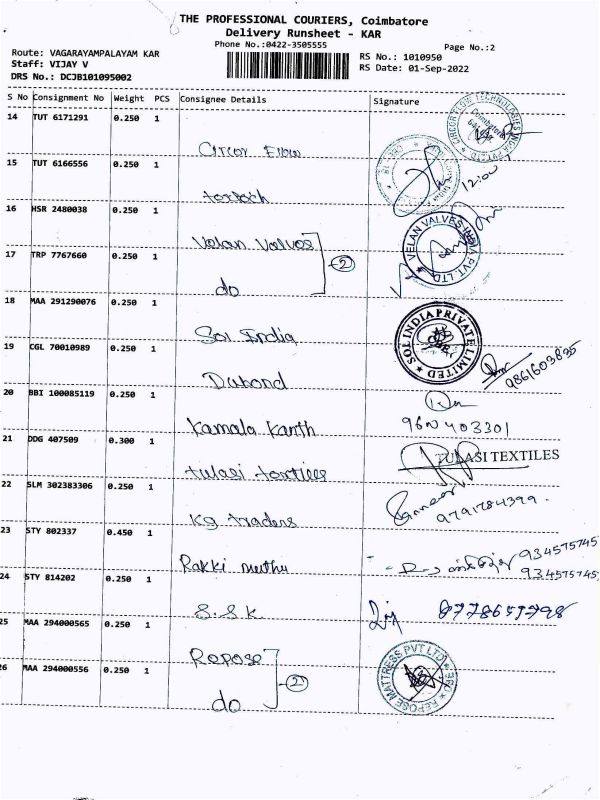 THE PROFESSIONAL COURIERS, Coimbatore
Delivery Runsheet - KAR
Phone No.:0422-3505555
Page No.:2
Route: VAGARAYAMPALAYAM KAR
RS No.: 1010950
Staff: VIJAY V
RS Date: 01-Sep-2022
DRS No.: DCJB101095002
S No Consignment No Weight PCS Consignee Details Signature
14 TUT 6171291 0.250 1
Circor Flow
CIRCOR FLOW TECHNOLOGIES INDIA PVT LTD Coimbatore
15 TUT 6166556 0.250 1
12:00
16 HSR 2480038 0.250 1
Velan Valves
VELAN VALVES INDIA PVT. LTD.
17 TRP 7767660 0.250 1
2
do
18 MAA 291290076 0.250 1
Soi India
SOT INDIA PRIVATE LIMITED
19 CGL 70010989 0.250 1
Dubond
9861603835
20 BBI 100085119 0.250 1
Kamala Kanth
9600403301
21 DDG 407509 0.300 1
tulasi textiles
TULASI TEXTILES
22 SLM 302383306 0.250 1
Kg traders
9791784399
23 STY 802337 0.450 1
Rakki muthu
9345757457
9345757457
24 STY 814202 0.250 1
S.S.K
8778657798
25 MAA 294000565 0.250 1
Repose
REPOSE MATTRESS PVT LTD
26 MAA 294000556 0.250 1
2
do